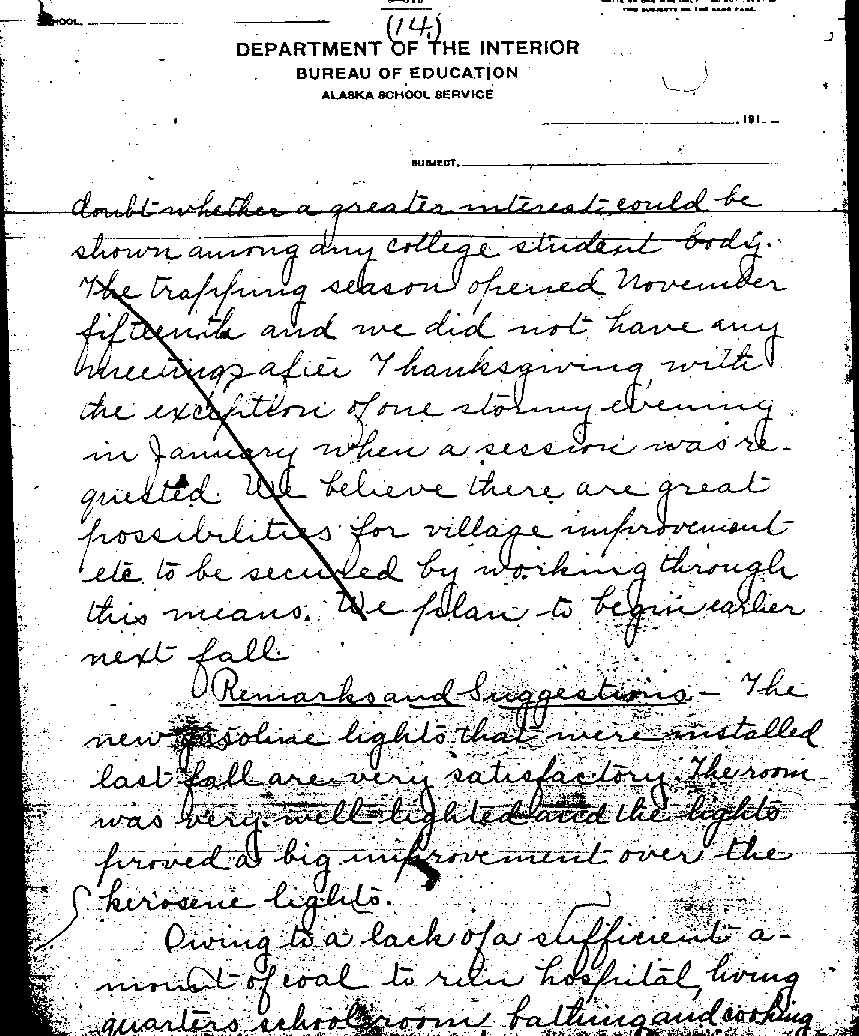 SCHOOL,
(14.)
DEPARTMENT OF THE INTERIOR
BUREAU OF EDUCATION
ALASKA SCHOOL SERVICE
, 191
SUBJECT,
doubt whether a greater interest could be
shown among any college student body.
The trapping season opened November
fifteenth and we did not have any
meetings after Thanksgiving with
the exception of one stormy evening
in January when a session was re-
quested. We believe there are great
possibilities for village improvement
etc. to be secured by working through
this means. We plan to begin earlier
next fall.
Remarks and Suggestions – The
new gasoline lights that were installed
last fall are very satisfactory. The room
was very well lighted and the lights
proved a big improvement over the
kerosene lights.
Owing to a lack of a sufficient a-
mount of coal to run hospital, living
quarters, school room, bathing and cooking